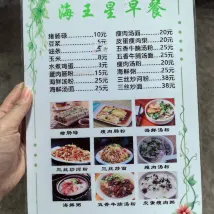 海王星早餐
猪肠碌......10元
豆浆......5元
油条......5元
玉米......8元
水煮海蛋......20元
瘦肉肠粉......20元
海鲜炒粉......25元
海鲜汤面......25元
瘦肉汤面......20元
皮蛋瘦肉粥......20元
五香牛腩汤粉......25元
五香牛腩汤面......25元
瘦肉汤粉......20元
海鲜粥......25元
三丝炒河粉......30元
三丝炒面......38元
猪肠碌
瘦肉肠粉
海鲜汤粉
三丝炒河粉
三丝炒面
海鲜粥
五香牛腩汤粉
皮蛋瘦肉粥